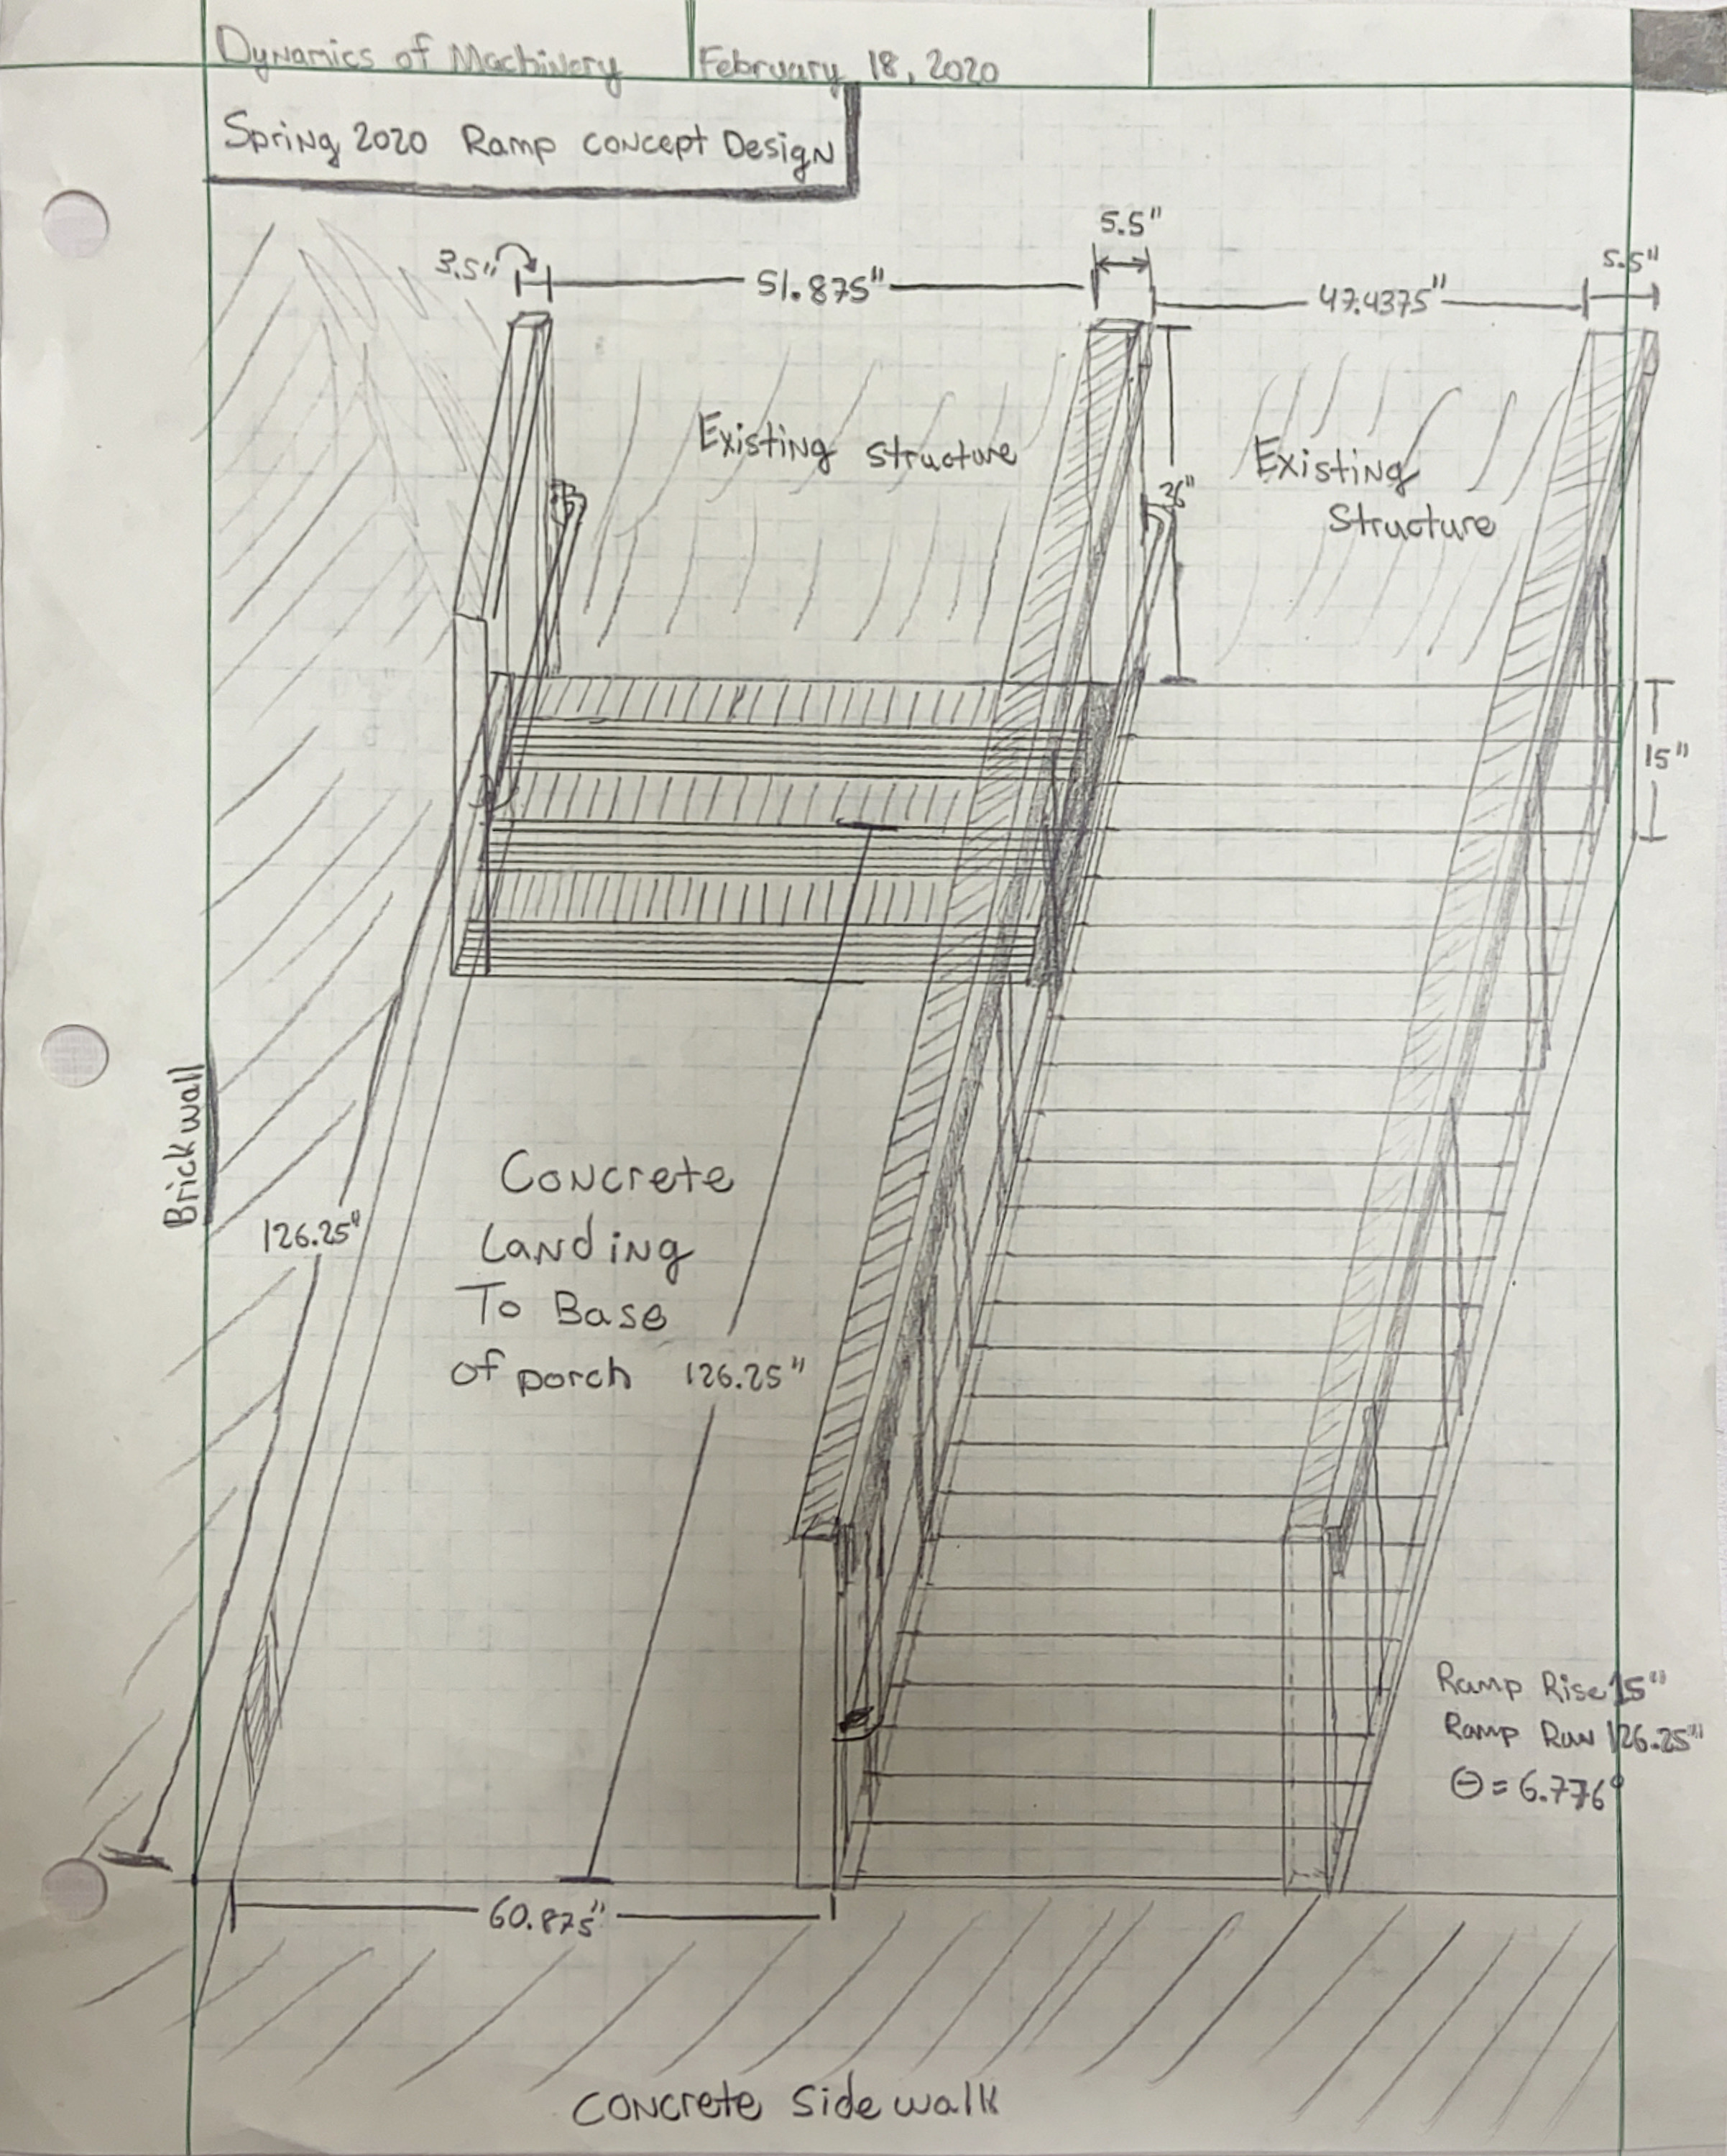 Dynamics of Machinery
February 18, 2020
Spring 2020 Ramp Concept Design
5.5"
3.5"
51.875"
47.4375"
5.5"
Existing structure
Existing
Structure
36"
15"
Brick wall
126.25"
Concrete
Landing
To Base
of porch
126.25"
Ramp Rise 15"
Ramp Run 126.25"
Θ = 6.776°
60.875"
Concrete Sidewalk